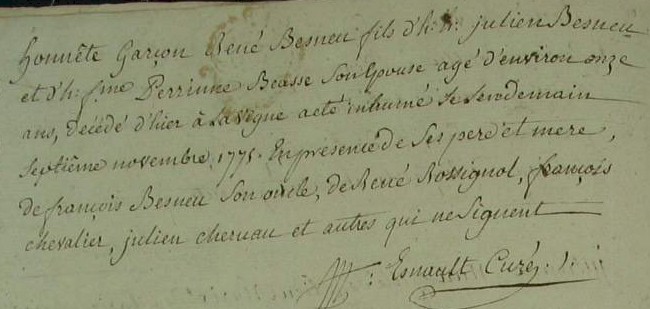 honnête Garçon René Besneu fils d'h. h. julien Besneu
et d'h. f.me Perrinne Beasse Son Epouse agé d'environ onze
ans, decédé d'hier à La vigne a eté inhumé Le
septiême novembre 1775. En presence de Ses pere et mere,
de françois Besneu Son oncle, de René Rossignol, françois
chevalier, julien cheruau et autres qui ne Signent
Esnault Curé